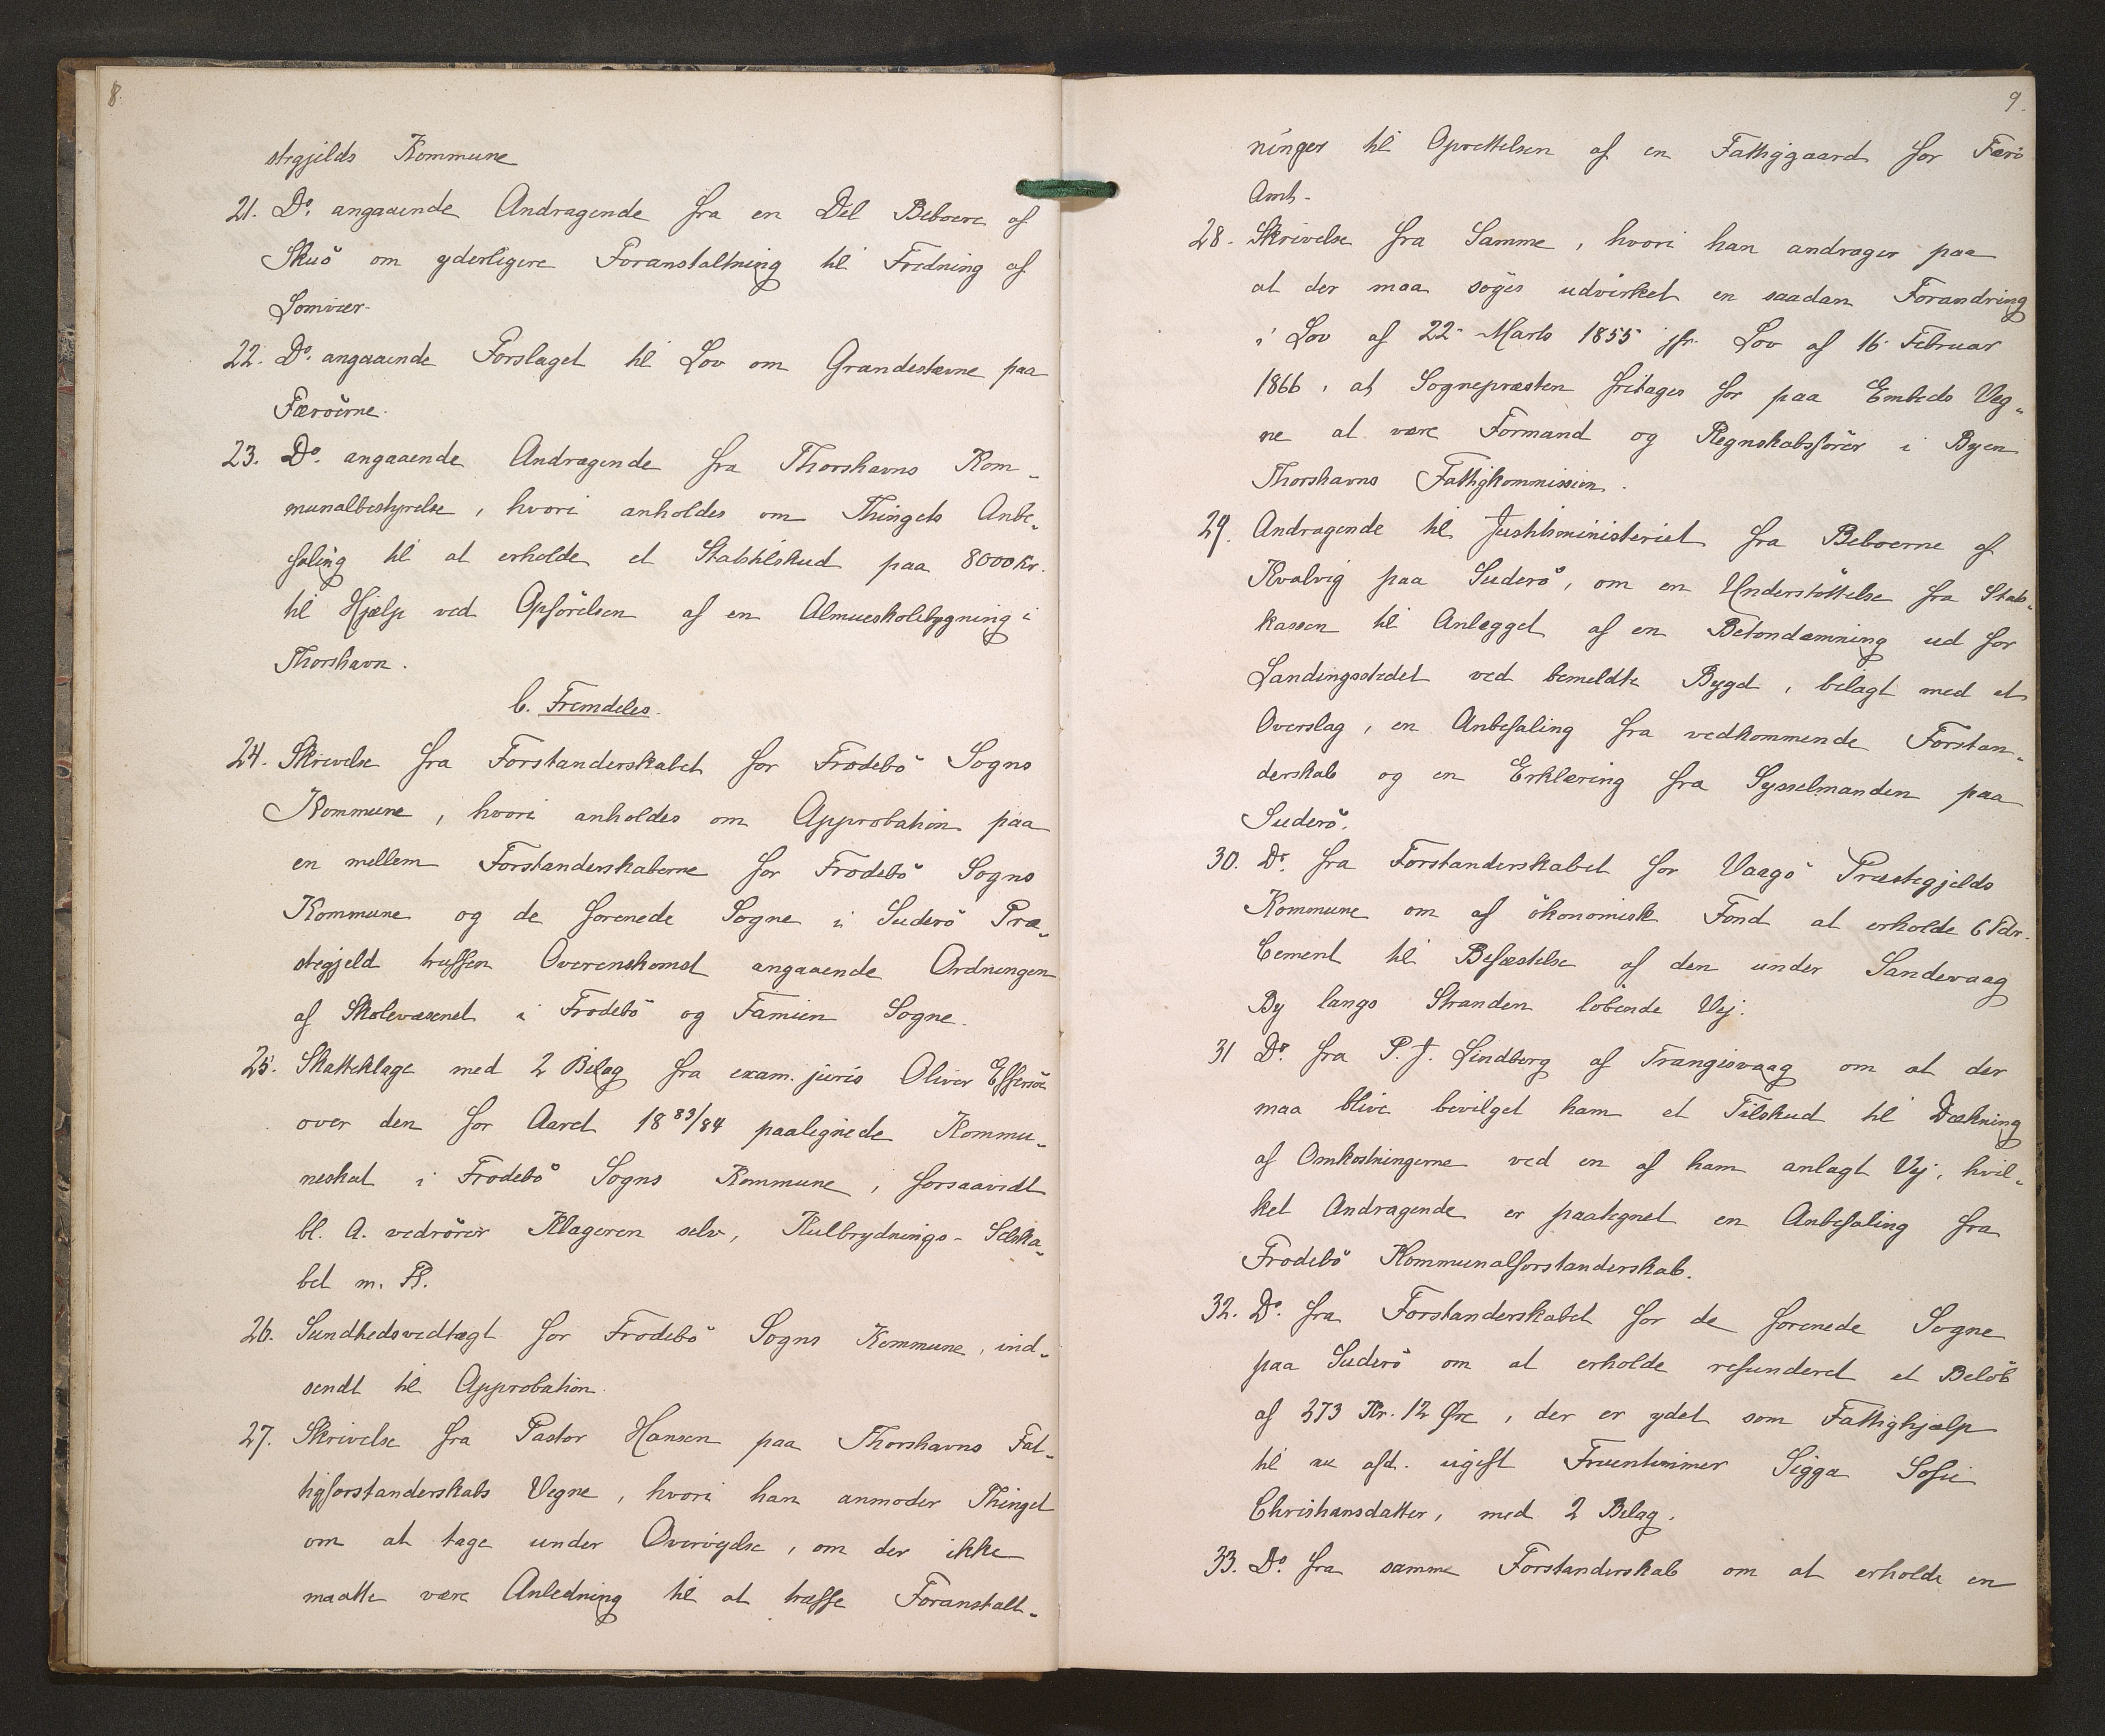 8.
stegjelds Kommune
21. Do. angaaende Andragende fra en Del Beboere af
Skuö om yderligere Foranstaltning til Fredning af
Lomvier.
22. Do. angaaende Forslaget til Lov om Grandestævne paa
Færöerne.
23. Do. angaaende Andragende fra Thorshavns Kom-
munalbestyrelse, hvori anholdes om Thingets Anbe-
faling til at erholde et Statstilskud paa 8000 Kr.
til Hjælp ved Opförelsen af en Almueskolebygning i
Thorshavn.
b. Fremdeles.
24. Skrivelse fra Forstanderskabet for Frodebö Sogns
Kommune, hvori anholdes om Approbation paa
en mellem Forstanderskaberne for Frodebö Sogns
Kommune og de forenede Sogne i Suderö Præ-
stegjeld truffen Overenskomst angaaende Ordningen
af Skolevæsenet i Frodebö og Famien Sogne.
25. Skatteklage med 2 Bilag fra exam. juris Oliver Effersöe
over den for Aaret 1883/84 paalignede Kommu-
neskat i Frodebö Sogns Kommune, forsaavidt
bl. A. vedrörer Klageren selv, Kulbrydnings-Selska-
bet m. Fl.
26. Sundhedsvedtægt for Frodebö Sogns Kommune, ind-
sendt til Approbation.
27. Skrivelse fra Pastor Hansen paa Thorshavns Fat-
tigforstanderskabs Vegne, hvori han anmoder Thinget
om at tage under Overvejelse, om der ikke
maatte være Anledning til at træffe Foranstalt-
9.
ninger til Oprettelsen af en Fattiggaard for Færö
Amt.
28. Skrivelse fra Samme, hvori han andrager paa
at der maa söges udvirket en saadan Forandring
i Lov af 22. Marts 1855 jfr. Lov af 16. Februar
1866, at Sognepræsten fritages for paa Embeds Veg-
ne at være Formand og Regnskabsförer i Byen
Thorshavns Fattigkommission.
29. Andragende til Justitsministeriet fra Beboerne af
Kvalvig paa Suderö, om en Understöttelse fra Stats-
kassen til Anlægget af en Betondæmning ud for
Landingsstedet ved bemeldte Bygd, bilagt med et
Overslag, en Anbefaling fra vedkommende Forstan-
derskab og en Erklæring fra Sysselmanden paa
Suderö.
30. Do. fra Forstanderskabet for Vaagö Præstegjelds
Kommune om af ökonomisk Fond at erholde 6 Tdr.
Cement til Befæstelse af den under Sandevaag
By langs Stranden löbende Vej.
31 Do. fra P. J. Lindberg af Trangisvaag om at der
maa blive bevilget ham et Tilskud til Dækning
af Omkostningerne ved en af ham anlagt Vej, hvil-
ket Andragende er paategnet en Anbefaling fra
Frodebö Kommunalforstanderskab.
32. Do. fra Forstanderskabet for de forenede Sogne
paa Suderö om at erholde refunderet et Belöb
af 373 Kr. 12 Øre, der er ydet som Fattighjælp
til nu afd. ugift Fruentimmer Sigga Sofie
Christiansdatter, med 2 Bilag.
33. Do. fra samme Forstanderskab om at erholde en